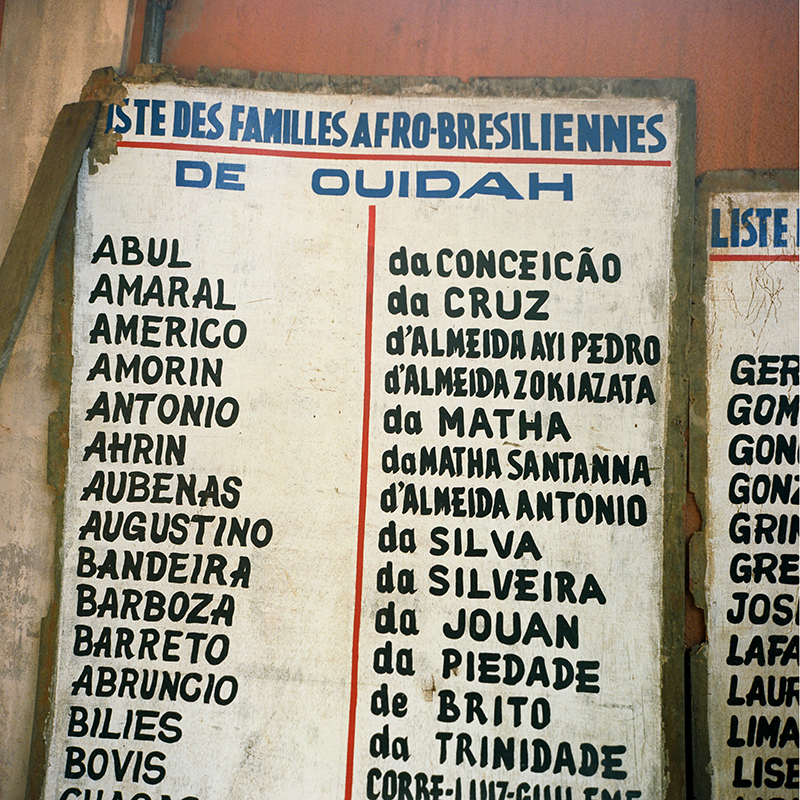 LISTE DES FAMILLES AFRO-BRESILIENNES
DE OUIDAH
ABUL
AMARAL
AMERICO
AMORIN
ANTONIO
AHRIN
AUBENAS
AUGUSTINO
BANDEIRA
BARBOZA
BARRETO
ABRUNCIO
BILIES
BOVIS
da CONCEICÃO
da CRUZ
d'ALMEIDA AYI PEDRO
d'ALMEIDA ZOKIAZATA
da MATHA
da MATHA SANTANNA
d'ALMEIDA ANTONIO
da SILVA
da SILVEIRA
da JOUAN
da PIEDADE
de BRITO
da TRINIDADE
LISTE
GER
GOM
GON
GONZ
GRIN
GRE
JOS
LAFA
LAUR
LIMA
LISE